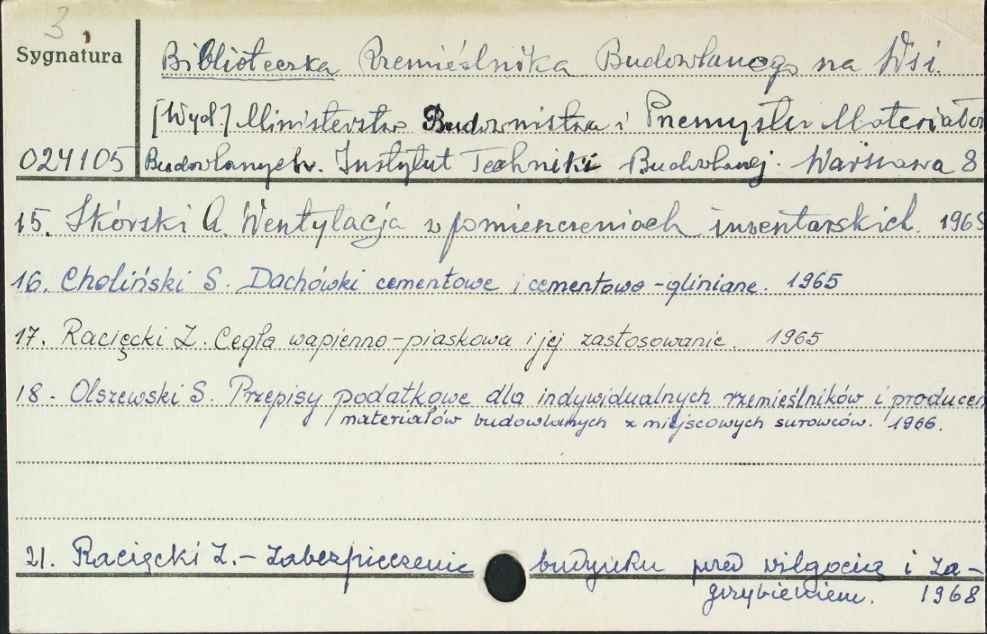 3
Sygnatura
Biblioteczka Rzemieślnika Budowlanego na Wsi.
[Wyd.] Ministerstwo Budownictwa i Przemysłu Materiałów
024105 Budowlanych. Instytut Techniki Budowlanej. Warszawa 8
15. Skórski A. Wentylacja w pomieszczeniach inwentarskich. 1965
16. Choliński S. Dachówki cementowe i cementowo-gliniane. 1965
17. Racięcki Z. Cegła wapienno-piaskowa i jej zastosowanie. 1965
18. Olszewski S. Przepisy podatkowe dla indywidualnych rzemieślników i producen
materiałów budowlanych z miejscowych surowców. 1966.
21. Racięcki Z. - Zabezpieczenie budynku przed wilgocią i za-
grzybieniem. 1968